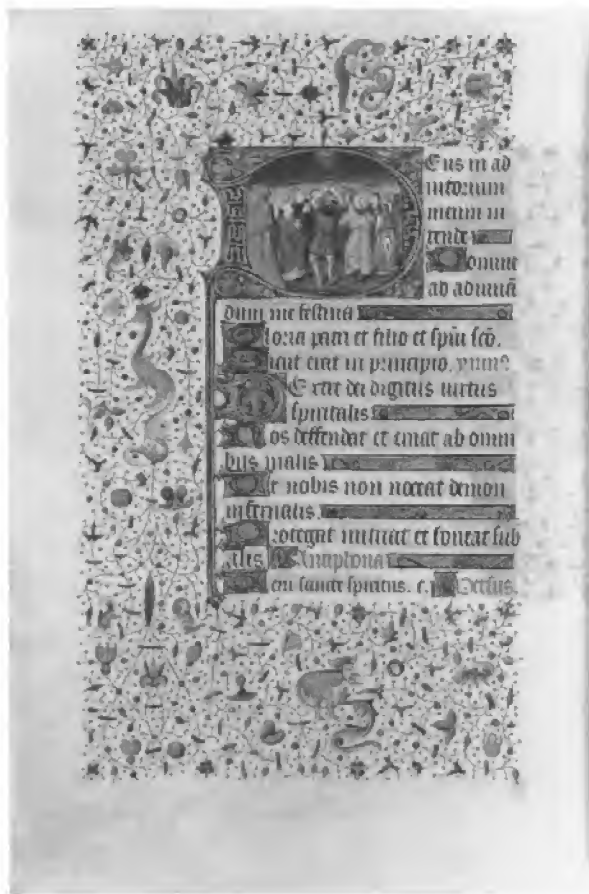 Eus in ad
iutorium
meum in
tende
Domine
ab adiuuā
dum me festina
Gloria patri et filio et spūi scō.
Sicut erat in principio. ymn⁹.
Dextre dei digitus uirtus
spiritalis
Nos deffendat et eruat ab omni
bus malis
Ut nobis non noceat demon
infernalis.
Protegat nutriat et foueat sub
alis Antiphona
Ueni sancte spiritus. Versus.